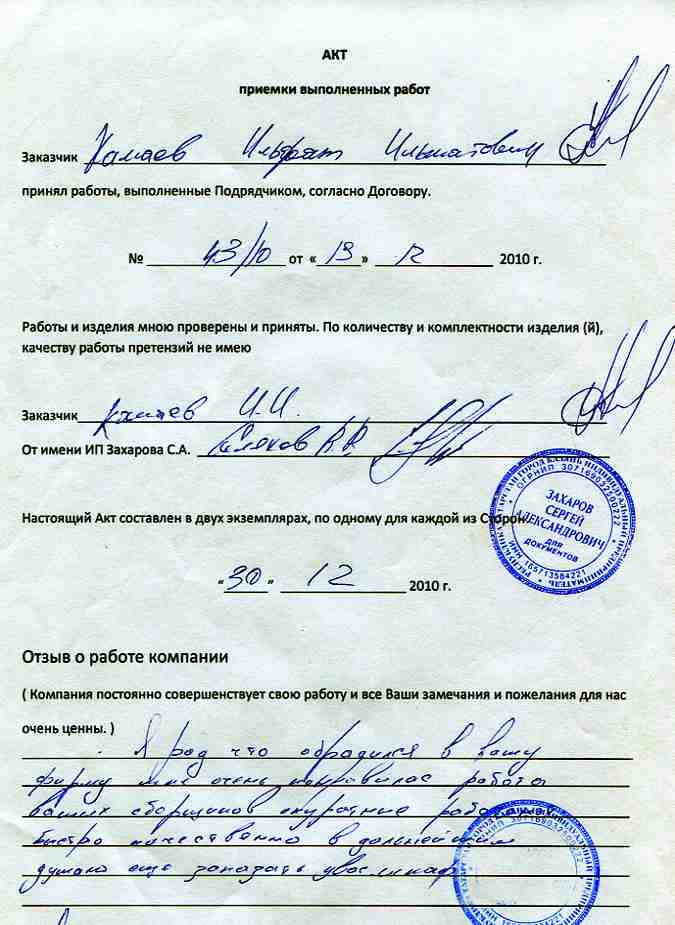 АКТ
приемки выполненных работ
Заказчик Камаев Ильфат Ильматович
принял работы, выполненные Подрядчиком, согласно Договору.
№ 43/10 от «13» 12 2010 г.
Работы и изделия мною проверены и приняты. По количеству и комплектности изделия (й),
качеству работы претензий не имею
Заказчик Камаев И.И.
От имени ИП Захарова С.А.
Настоящий Акт составлен в двух экземплярах, по одному для каждой из Сторон.
ЗАХАРОВ
СЕРГЕЙ
АЛЕКСАНДРОВИЧ
ДЛЯ
ДОКУМЕНТОВ
«30» 12 2010 г.
Отзыв о работе компании
( Компания постоянно совершенствует свою работу и все Ваши замечания и пожелания для нас
очень ценны. )
Я рад что обратился в вашу
фирму мне очень понравилас работа
ваших сборщиков акуратные
быстро качественно в дальнейшем
думаю еще заказать у вас шкаф